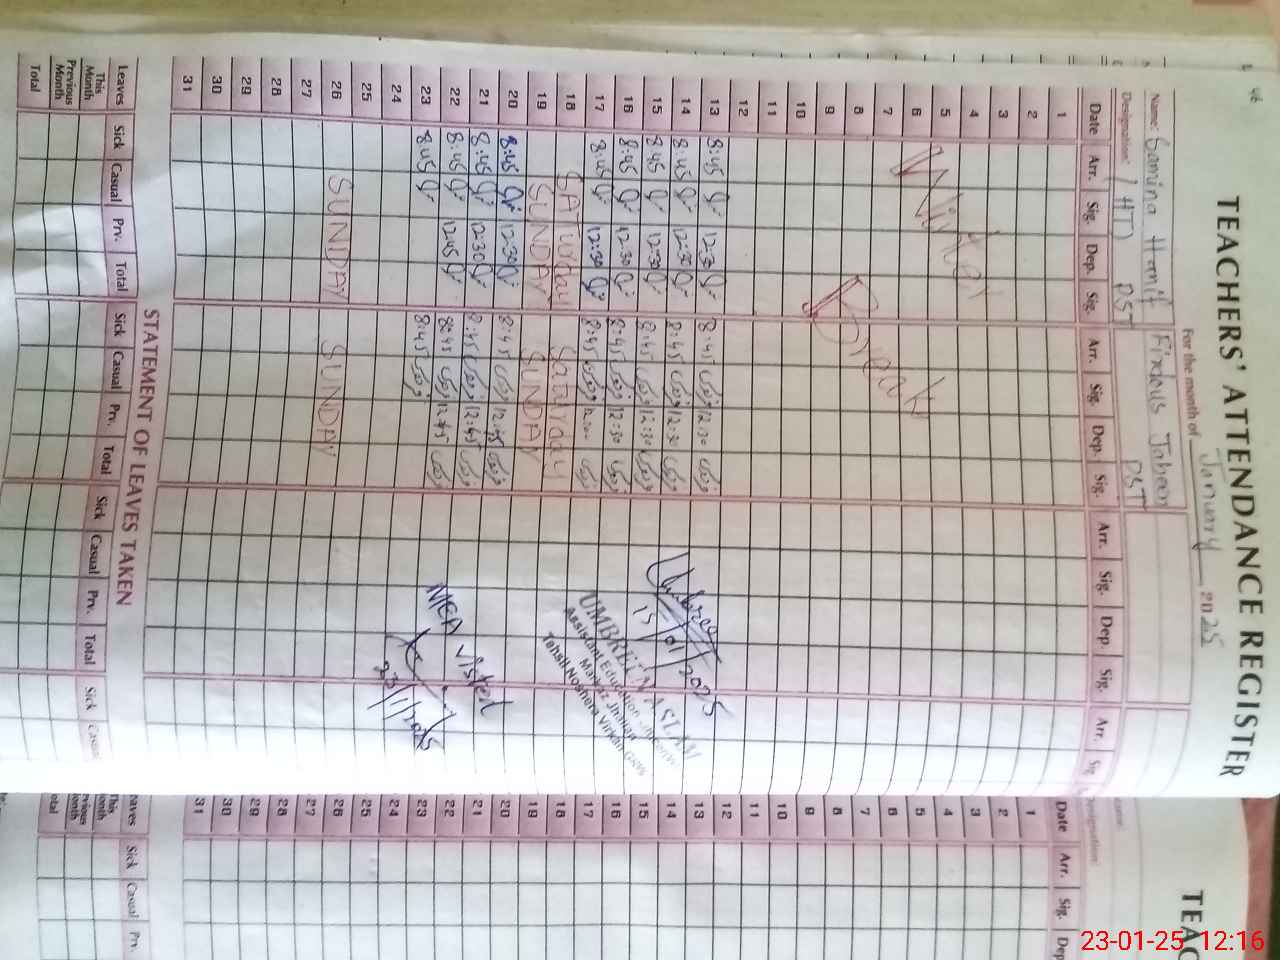 46
TEACHERS' ATTENDANCE REGISTER
For the month of January 2025
Name: Samina Hanif Firdous Jabeen
Designation: (HT) PST PST
Date Arr. Sig. Dep. Sig. Arr. Sig. Dep. Sig. Arr. Sig. Dep. Sig. Arr. Sig.
1
2
3
4
5
6
7
8
9
10
11
12
Winter Break
13 8:45 12:30 8:45 12:30
14 8:45 12:30 8:45 12:30
15 8:45 12:30 8:45 12:30
16 8:45 12:30 8:45 12:30
17 8:45 12:30 8:45 12:00
18 SATurday Saturday
19 SUNDAY SUNDAY
20 8:45 12:30 8:45 12:45
21 8:45 12:30 8:45 12:45
22 8:45 12:45 8:45 12:45
23 8:45 8:45
24
25
26 SUNDAY SUNDAY
27
28
29
30
31
15/01/2025
UMBREEN ASLAM
Assistant Education
Markaz
Tehsil Noshera Virkan
MEA Visited
23/1/2025
STATEMENT OF LEAVES TAKEN
Leaves Sick Casual Prv. Total Sick Casual Prv. Total Sick Casual Prv. Total Sick Casual
This Month
Previous Month
Total
TEAC
Designation:
Date Arr. Sig. Dep
1
2
3
4
5
6
7
8
9
10
11
12
13
14
15
16
17
18
19
20
21
22
23
24
25
26
27
28
29
30
31
eaves Sick Casual Prv.
This
onth
evious
onth
otal
23-01-25 12:16